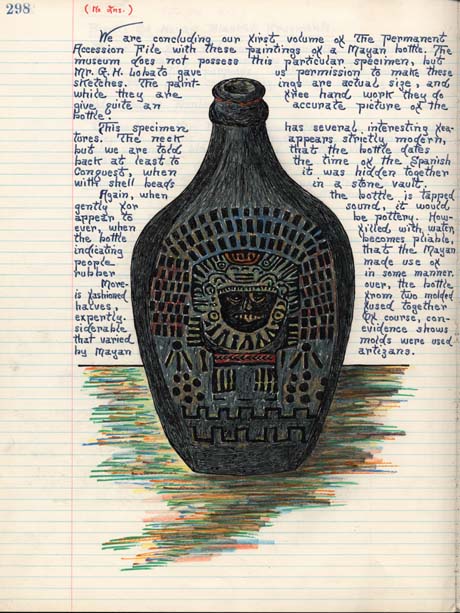 298
(No Ans.)
We are concluding our first volume of the Permanent
Accession File with these paintings of a Mayan bottle. The
museum does not possess this particular specimen, but
Mr. G. H. Lobato gave us permission to make these
sketches. The paintings are actual size, and
while they are free hand work they do
give quite an accurate picture of the
bottle.
This specimen has several interesting fea-
tures. The neck appears strictly modern,
but we are told that the bottle dates
back at least to the time of the Spanish
Conquest, when it was hidden together
with shell beads in a stone vault.
Again, when the bottle is tapped
gently for sound, it would
appear to be pottery. How-
ever, when filled with water,
the bottle becomes pliable,
indicating that the Mayan
people made use of
rubber in some manner.
More- over, the bottle
is fashioned from two molded
halves, fused together
expertly. Of course, con-
siderable evidence shows
that varied molds were used
by Mayan artizans.